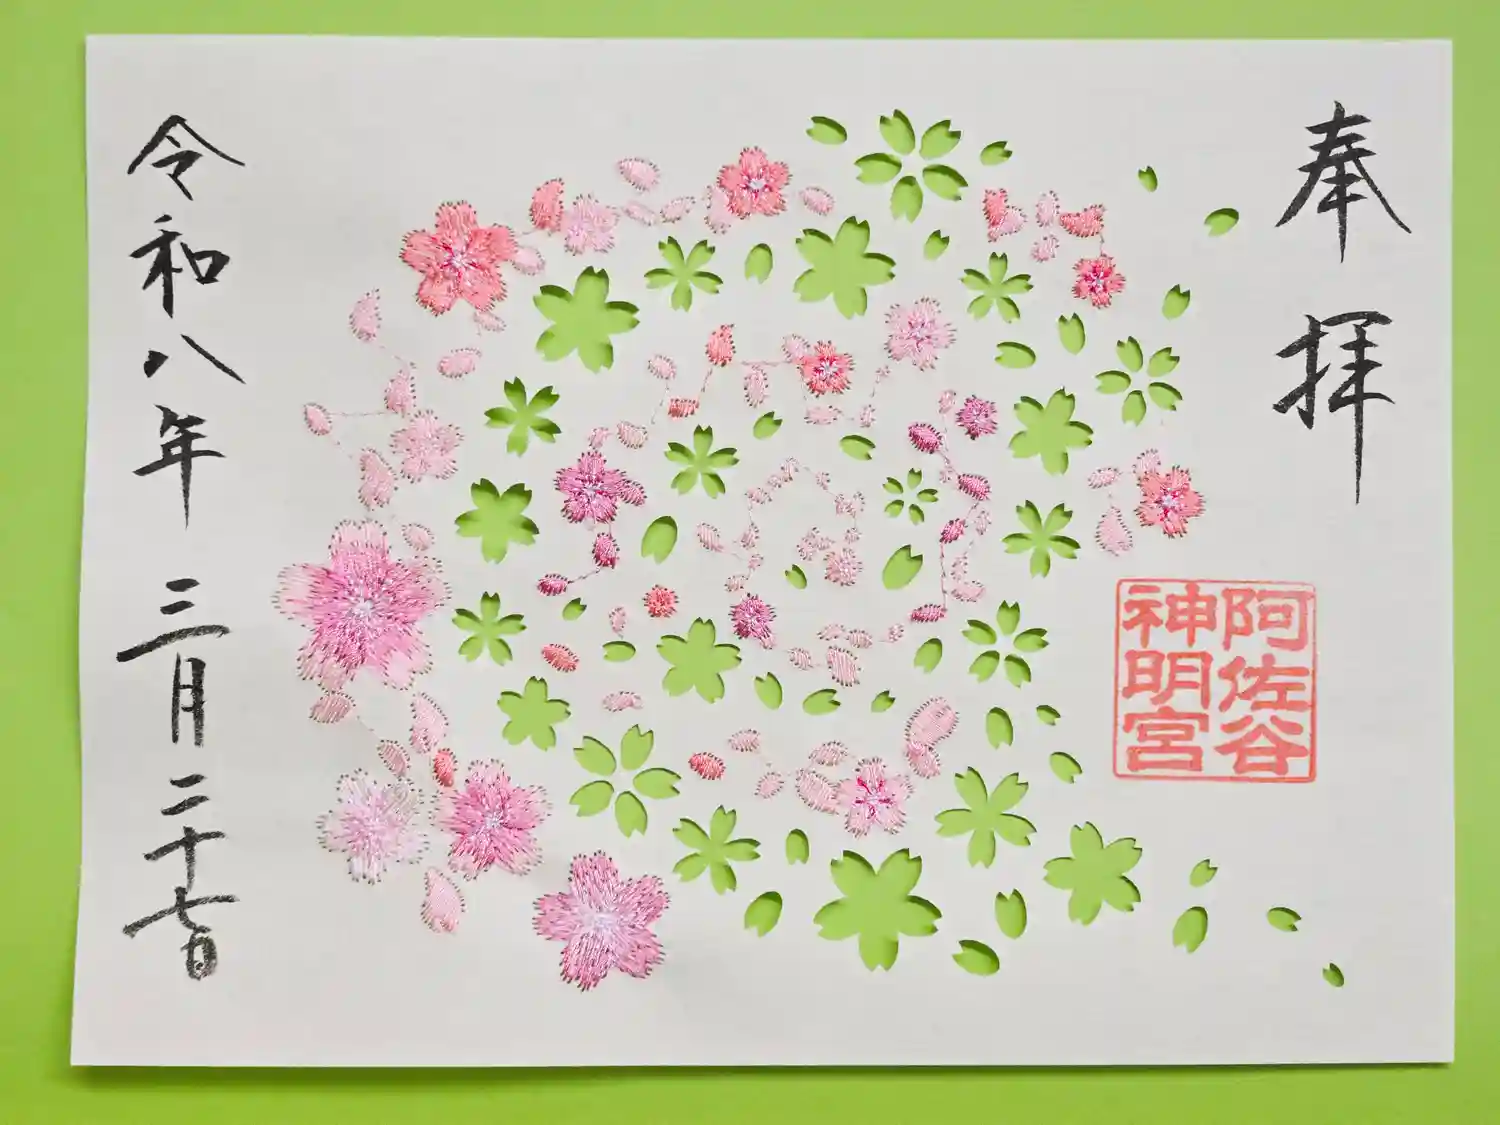 奉拝
阿佐谷
神明宮
令和八年三月二十七日